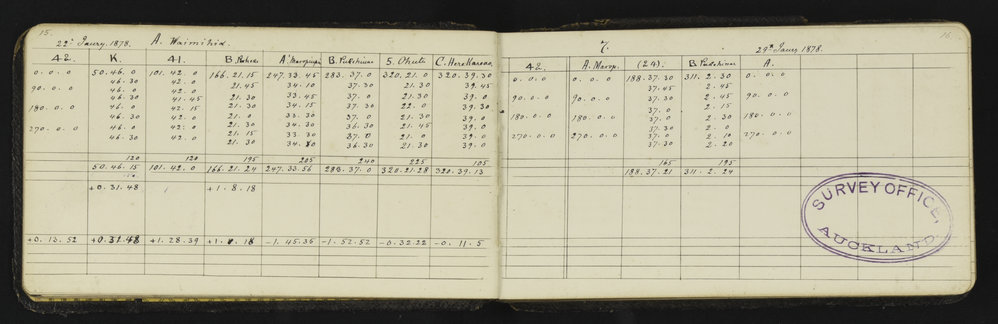 15.
22nd Jany. 1878. A. Waimihia.
42. K. 41. B. Pohue A. Maropapa B. Pukohinau 5. Ohuti C. Here Karara
0.0.0 50.46.0 101.42.0 166.21.15 247.33.45 283.37.0 320.21.0 320.39.30
46.30 42.0 21.45 34.10 37.30 21.30 39.45
90.0.0 46.0 42.0 21.0 33.45 37.0 21.30 39.0
46.30 41.45 21.30 34.15 37.30 22.0 39.30
180.0.0 46.0 42.15 21.0 33.30 37.0 21.30 39.0
46.30 42.0 21.30 34.30 36.30 21.45 39.0
270.0.0 46.0 42.0 21.15 33.30 37.0 21.0 39.0
46.30 42.0 21.30 34.30 36.30 21.30 39.0
120 120 195 205 240 225 105
50.46.15 101.42.0 166.21.24 247.33.56 283.37.0 320.21.28 320.39.13
+0.31.48 +1.8.18
+0.13.52 +0.31.48 +1.28.39 +1.8.18 -1.45.35 -1.52.52 -0.32.22 -0.11.5
16.
7. 29th Jany 1878.
42. A. Marop. (24). B. Pukohinau A.
0.0.0 0.0.0 188.37.30 311.2.30 0.0.0
37.45 2.45
90.0.0 90.0.0 37.30 2.45 90.0.0
37.0 2.15
180.0.0 180.0.0 37.0 2.30 180.0.0
37.30 2.0
270.0.0 270.0.0 37.0 2.10 270.0.0
37.30 2.20
165 195
188.37.21 311.2.24
SURVEY OFFICE,
AUCKLAND.